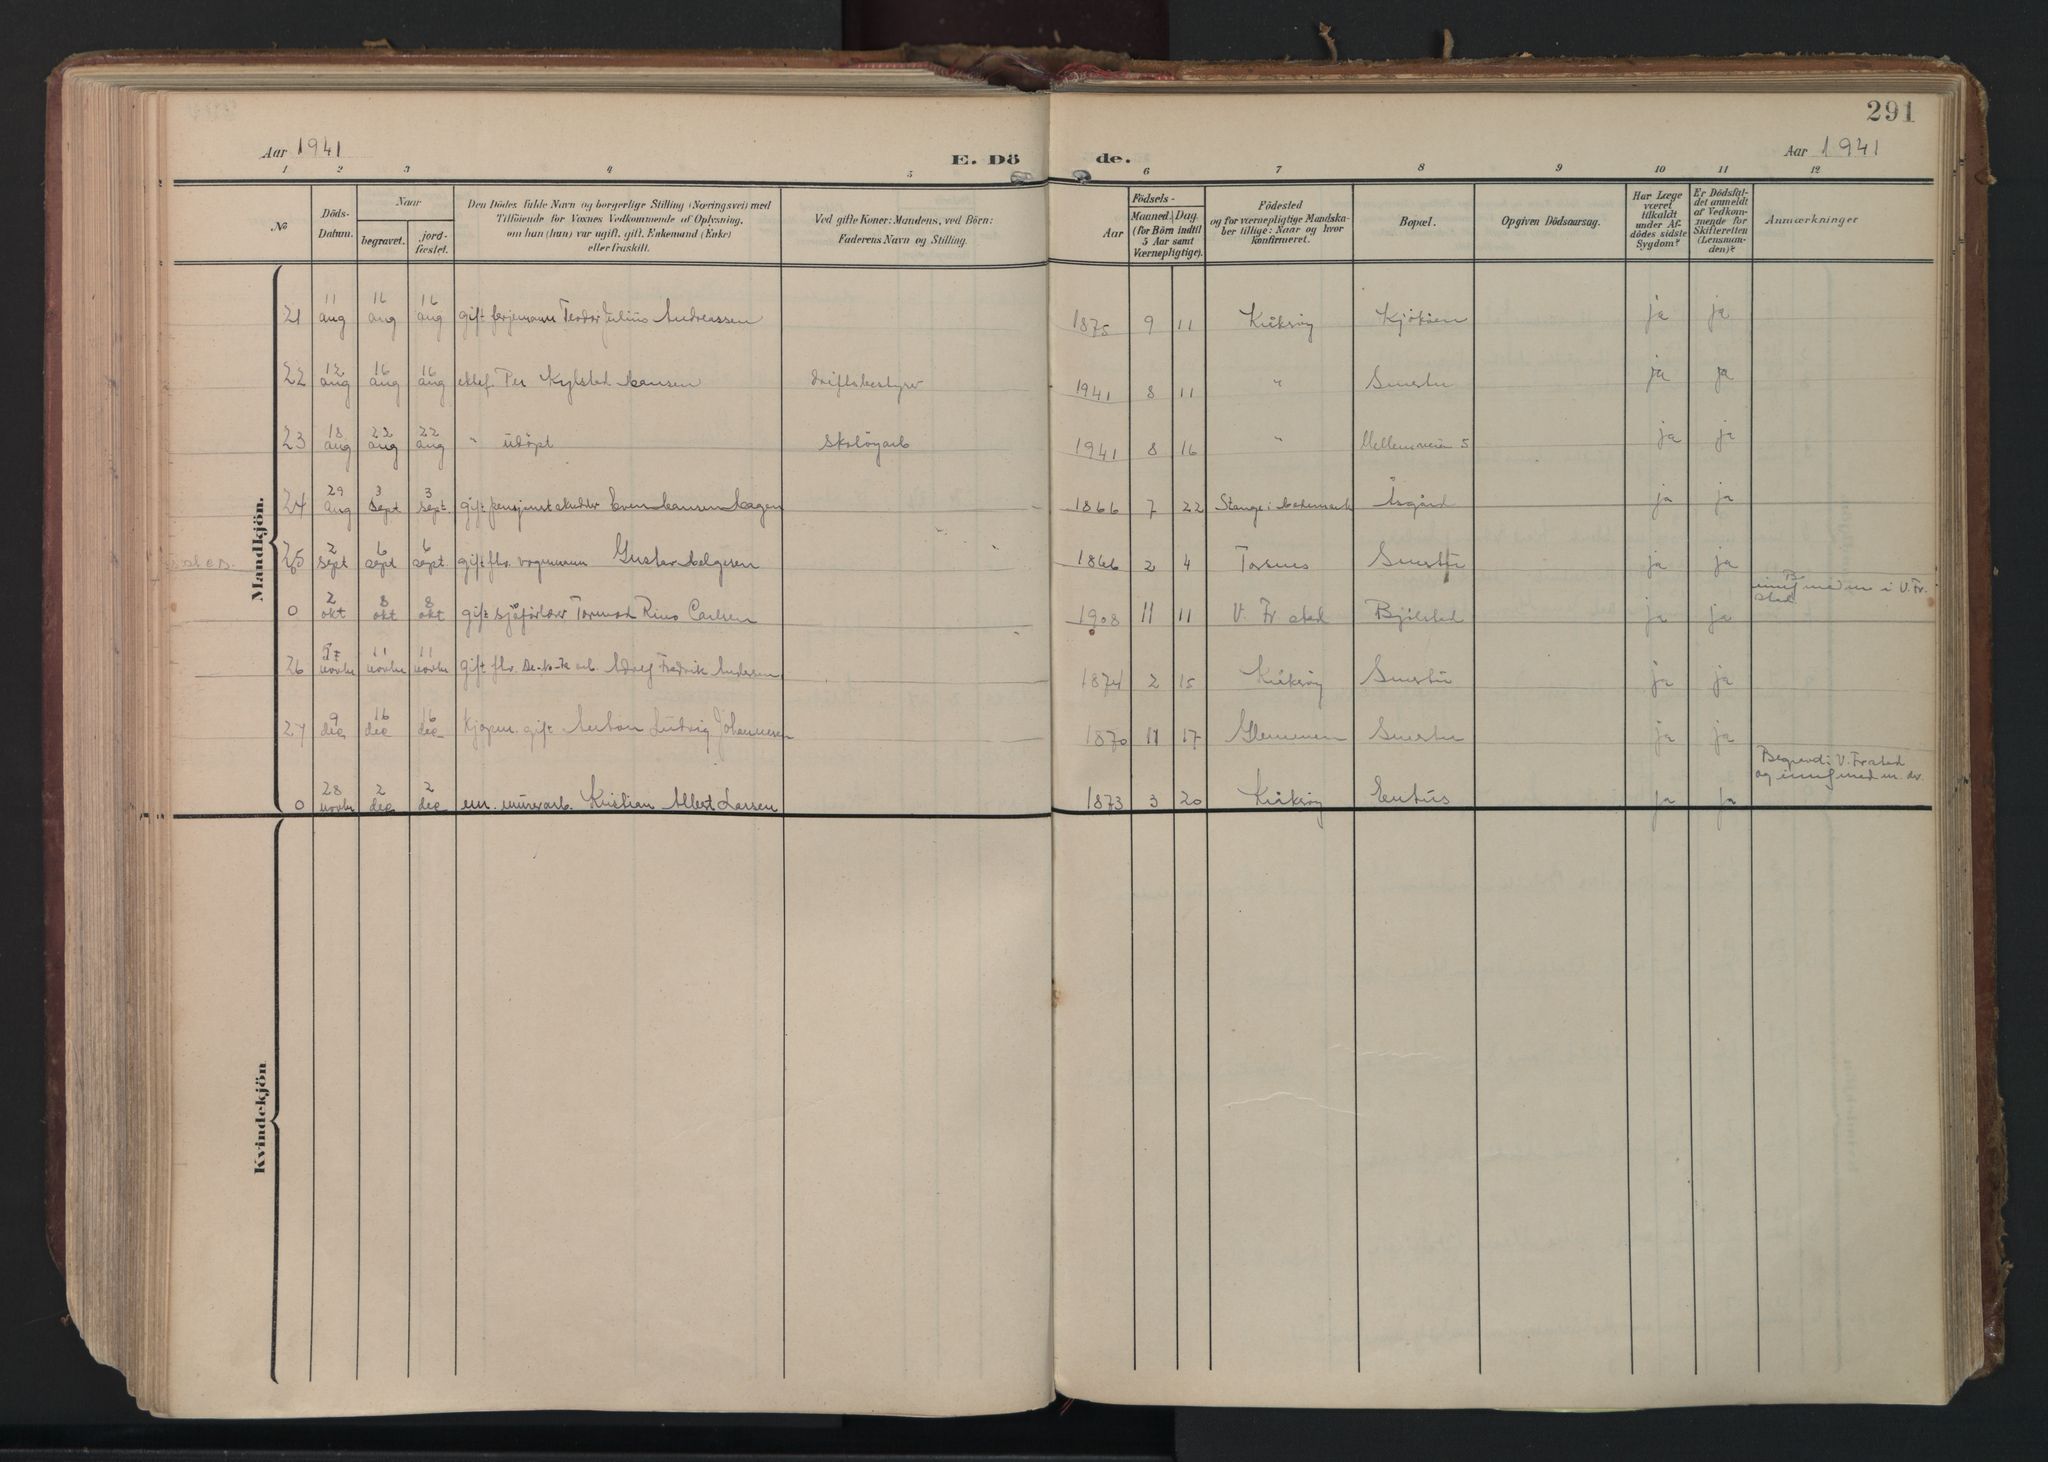 291
Aar 1941
E. Dö de.
Aar 1941
1 2 3 4 5 6 7 8 9 10 11 12
No
Döds-Datum.
Naar
begravet.
jord-fæstet.
Den Dödes fulde Navn og borgerlige Stilling (Næringsvei) med
Tilföiende for Voxnes Vedkommende af Oplysning,
om han (hun) var ugift, gift, Enkemand (Enke)
eller fraskilt.
Ved gifte Koner: Mandens, ved Börn:
Faderens Navn og Stilling.
Födsels-
Aar
Maaned. Dag.
(for Börn indtil
5 Aar samt
Værnepligtige).
Födested
og for værnepligtige Mandska-
ber tillige: Naar og hvor
konfirmeret.
Bopæl.
Opgiven Dödsaarsag.
Har Læge
været
tilkaldt
under Af-
dödes sidste
Sygdom?
Er Dödsfal-
det anmeldt
af Vedkom-
mende for
Skifteretten
(Lensman-
den)?
Anmærkninger
Mandkjön.
21 11 aug 16 aug 16 aug gift ferjemann Teodor Julius Andreassen 1875 9 11 Kråkerøy Kjøkøen ja ja
22 12 aug 16 aug 16 aug ektef. Per Kylstad Hansen driftsbestyrer 1941 8 11 " Smertu ja ja
23 18 aug 22 aug 22 aug " udöpt Skotøyarb 1941 8 16 " Mellemveien 5 ja ja
24 29 aug 3 sept 3 sept. gift Even Hansen Hagen 1866 7 22 Stange i Hedemark Åsgård ja ja
25 2 sept 6 sept 6 sept. gift fhv. vognmann Gustav Helgesen 1866 2 4 Torsnes Smertu ja ja
0 2 okt 8 okt 8 okt gift sjåførlærer Tormod Rino Carlsen 1908 11 11 V. Fr.stad Bjølstad ja ja i V. Fr.stad
26 novbr 11 novbr 11 novbr gift fhv. arb. Adolf Fredrik Andersen 1874 2 15 Kråkerøy Smertu ja ja
27 9 dec 16 dec 16 dec kjøpm. gift Anton Ludvig Johannesen 1870 11 17 Glemmen Smertu ja ja
0 28 novbr 2 dec 2 dec em. murerarb. Kristian Albert Larsen 1873 3 20 Kråkerøy Enhus ja ja Begravd i V. Frstad
Kvindekjön